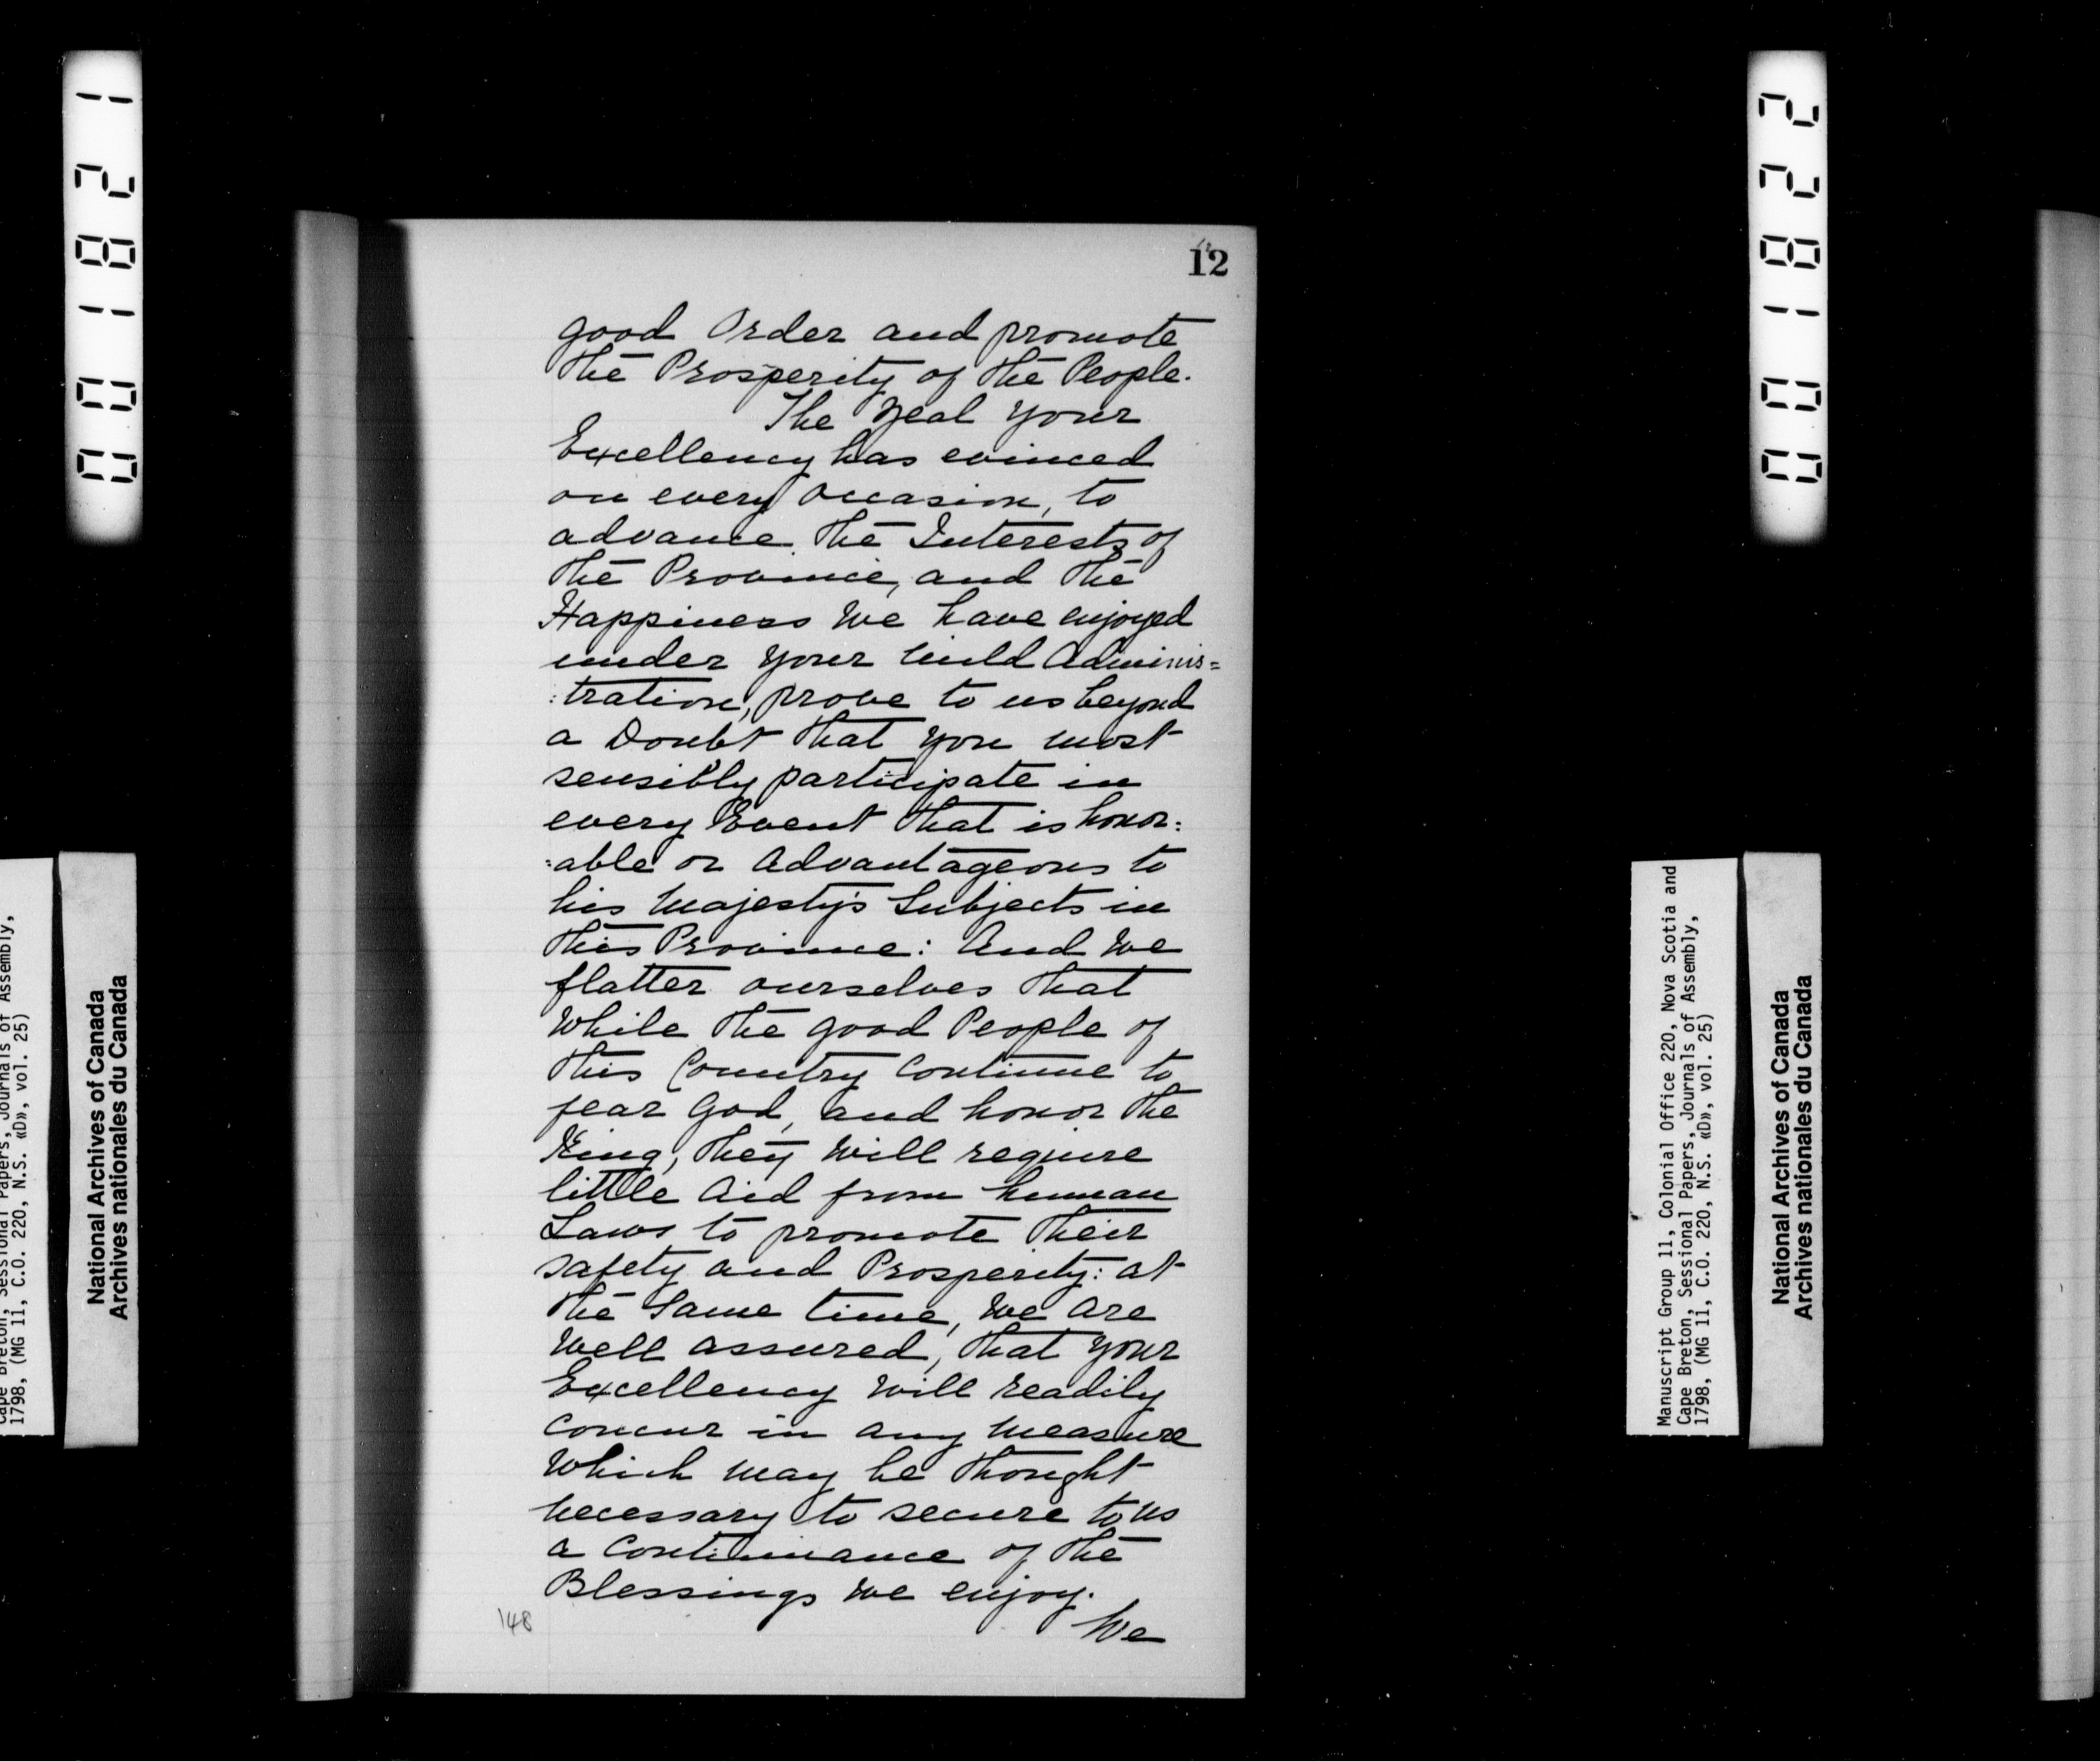 001821
001822
12
good Order and promote
the Prosperity of the People.
The Zeal your
Excellency has evinced
on every occasion, to
advance the Interests of
the Province, and the
Happiness We have enjoyed
under your mild Adminis=
:tration, prove to us beyond
a Doubt that you most
sensibly participate in
every Event that is honor:
:able or Advantageous to
his Majesty's Subjects in
this Province: And We
flatter ourselves that
While the good People of
this Country Continue to
fear God, and honor the
King, they Will require
little Aid from human
Laws to promote their
safety and Prosperity: at
the Same time, We are
Well assured, that your
Excellency Will readily
concur in any Measure
Which may be thought
necessary to secure to us
a Continuance of the
Blessings We enjoy.
We
148
Cape Breton, Sessional Papers, Journals of Assembly,
1798, (MG 11, C.O. 220, N.S. «D», vol. 25)
National Archives of Canada
Archives nationales du Canada
Manuscript Group 11, Colonial Office 220, Nova Scotia and
Cape Breton, Sessional Papers, Journals of Assembly,
1798, (MG 11, C.O. 220, N.S. «D», vol. 25)
National Archives of Canada
Archives nationales du Canada